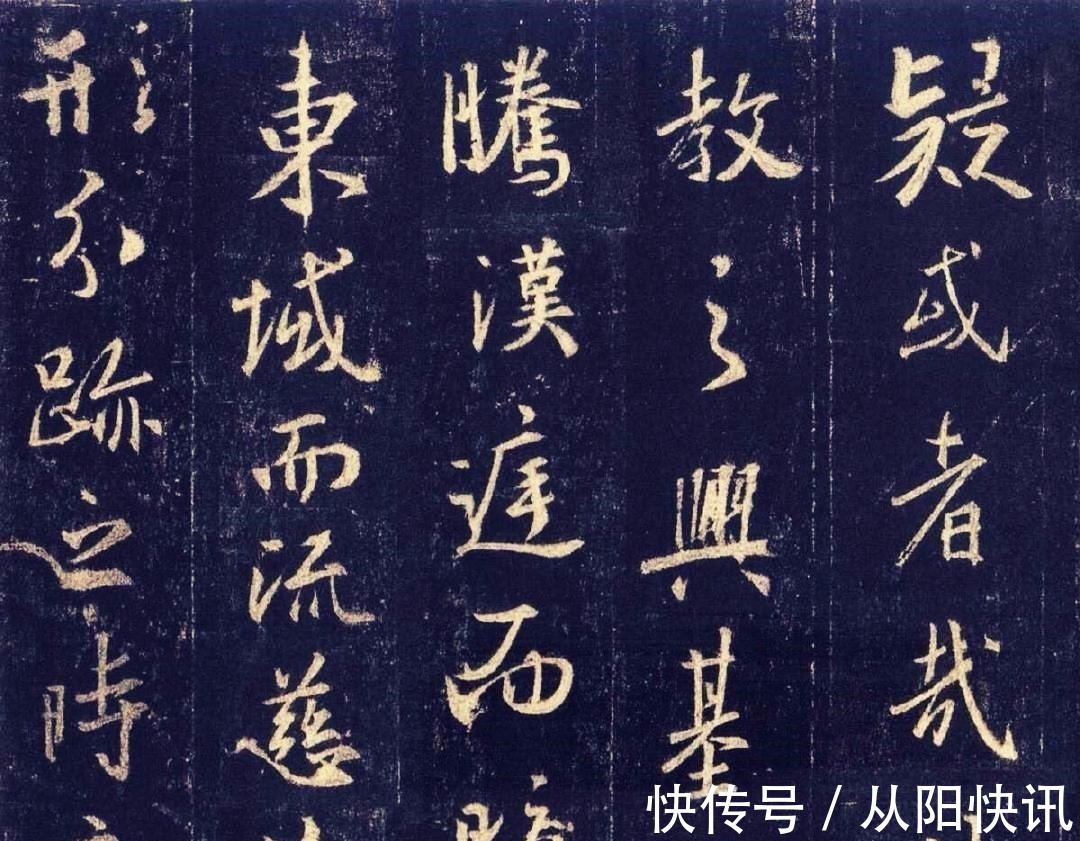 疑或者哉
教之興基
騰漢庭而
東域而流慈
形分跡之時
快传号 / 从阳快讯